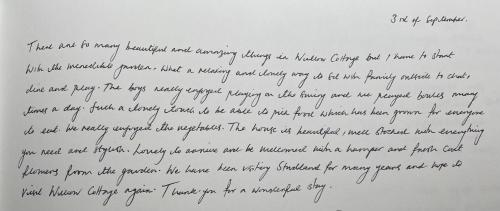 3rd of September.
There are so many beautiful and amazing things in Willow Cottage but I have to start
with the incredible garden. What a relaxing and lovely way to sit with family outside to chat,
dine and play. The boys really enjoyed playing on the swing and we played boules many
times a day. Such a lovely touch to be able to pick food which has been grown for everyone
to eat. We really enjoyed the vegetables. The house is beautiful, well stocked with everything
you need and stylish. Lovely to arrive and be welcomed with a hamper and fresh cut
flowers from the garden. We have been visiting Studland for many years and hope to
visit Willow Cottage again. Thank-you for a wonderful stay.